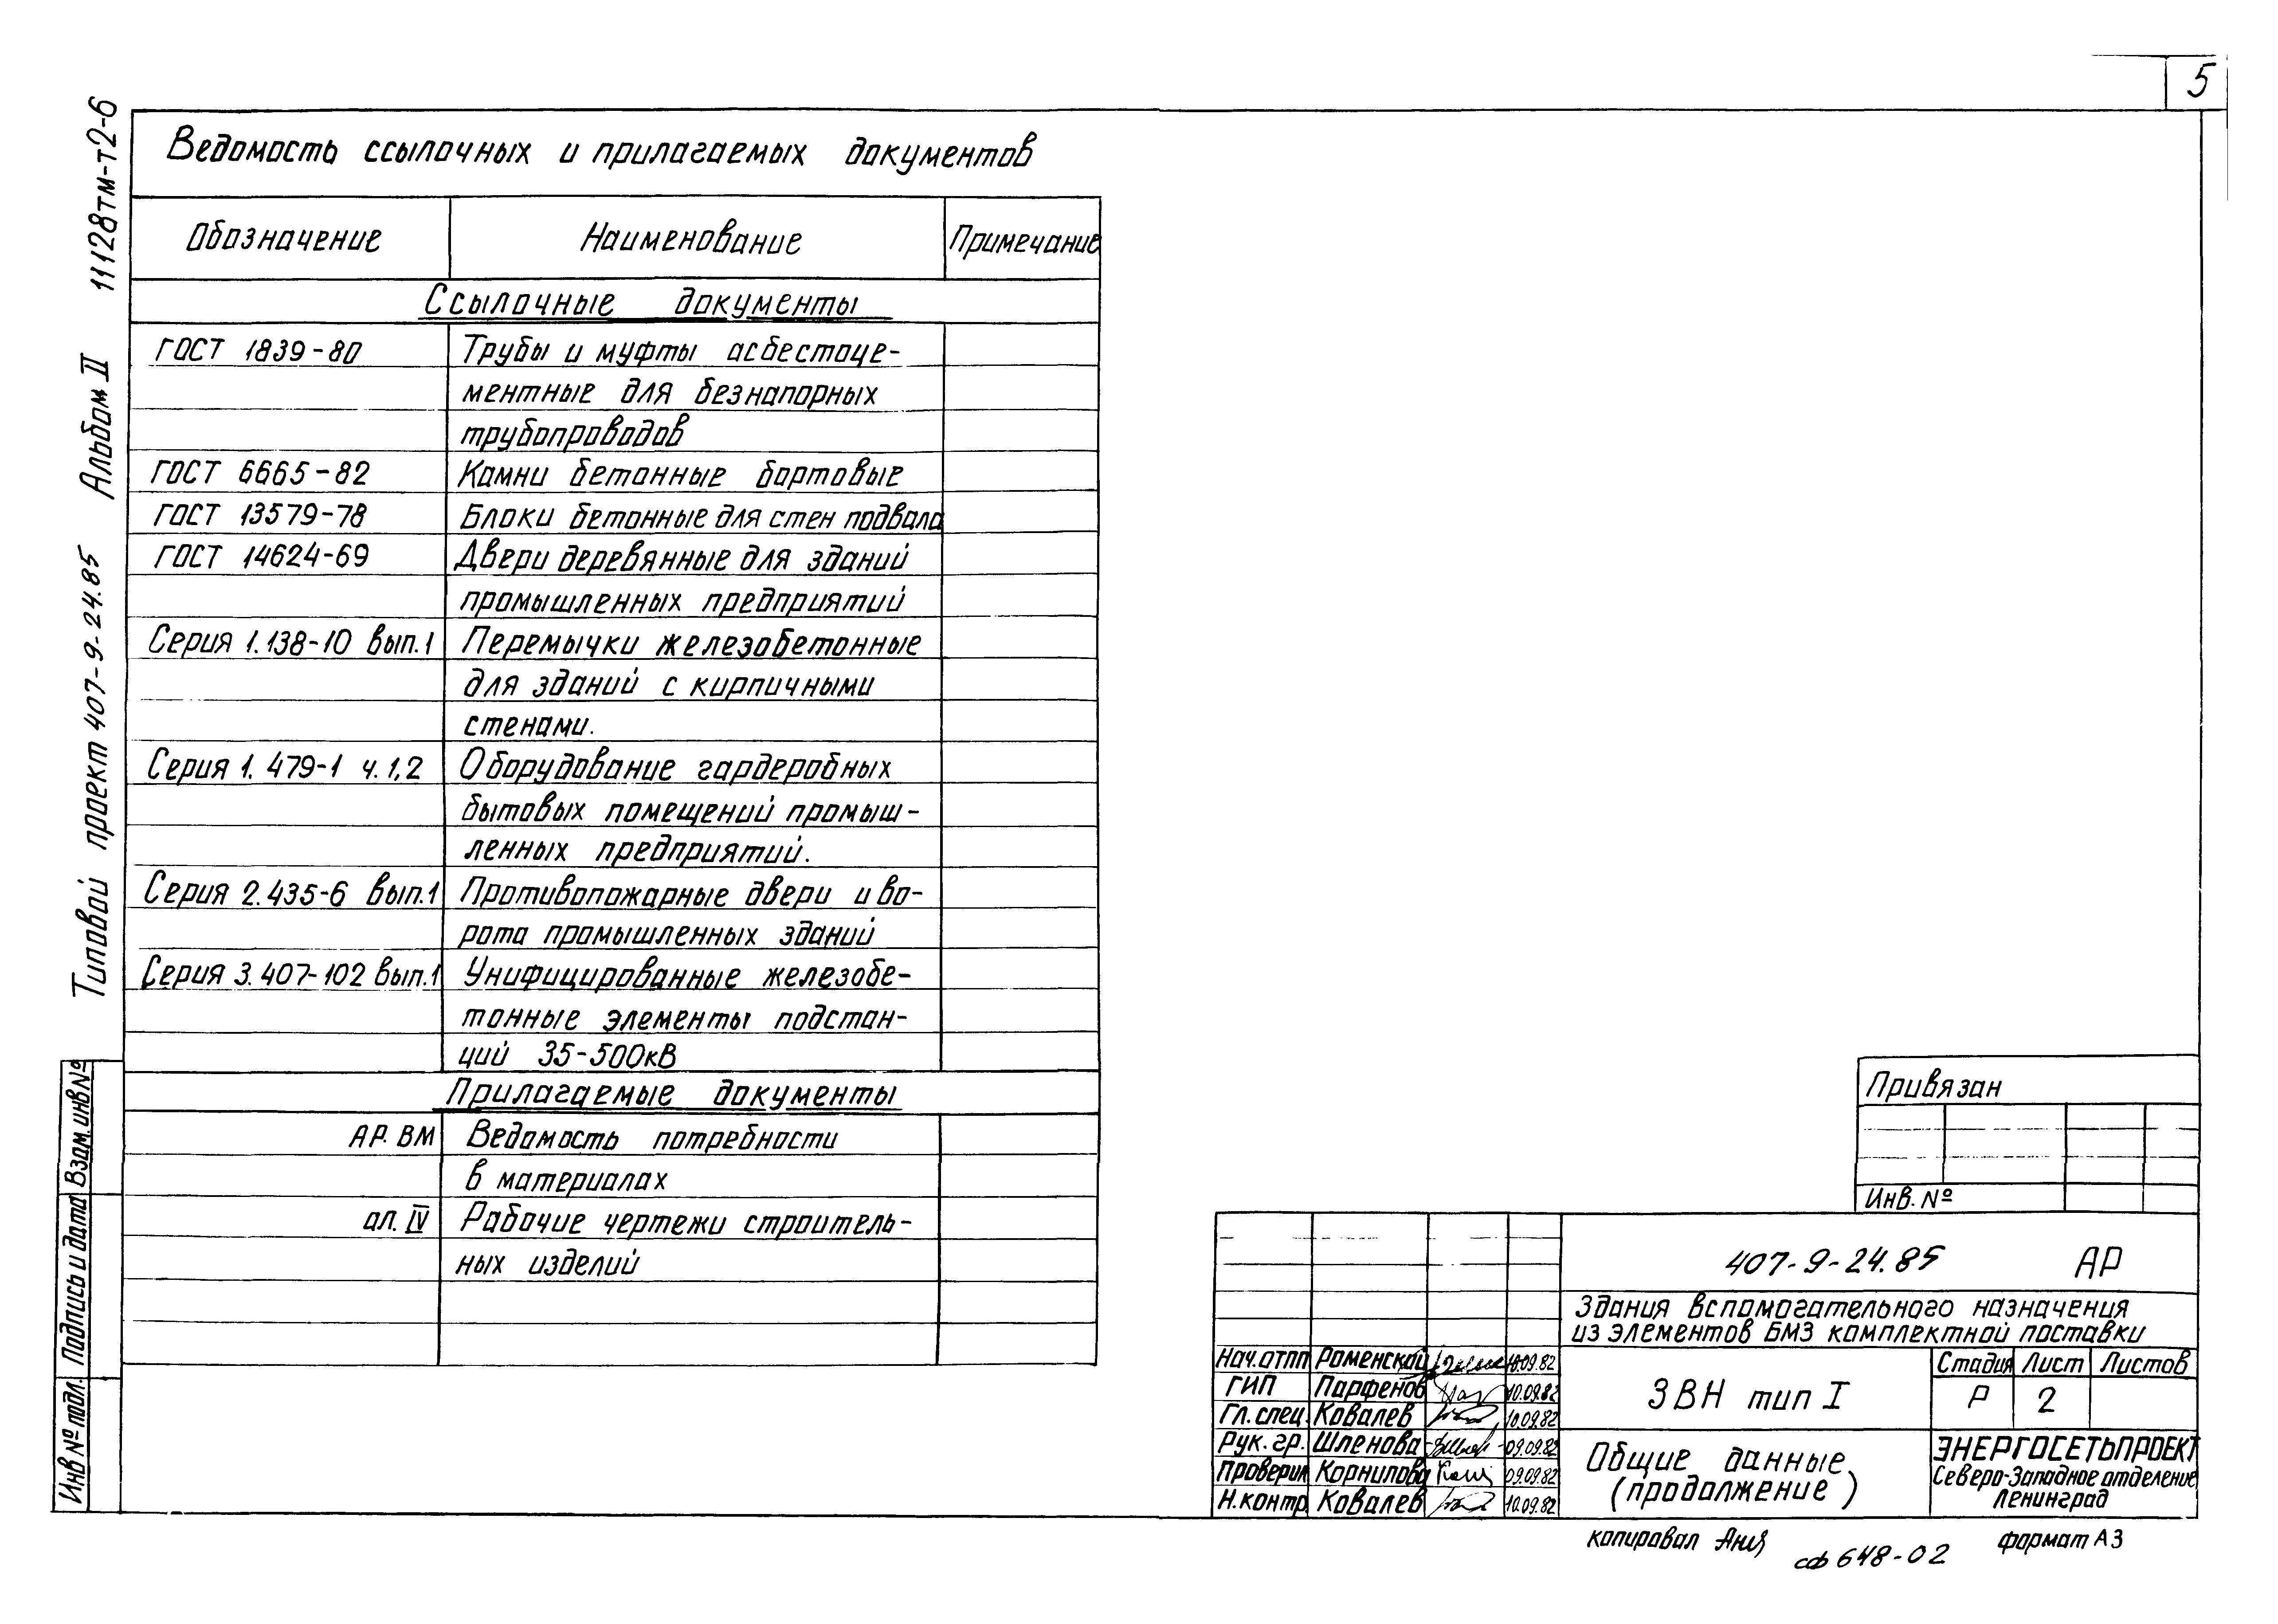 5
Ведомость ссылочных и прилагаемых документов
Обозначение Наименование Примечание
Ссылочные документы
ГОСТ 1839-80 Трубы и муфты асбестоце-
ментные для безнапорных
трубопроводов
ГОСТ 6665-82 Камни бетонные бортовые
ГОСТ 13579-78 Блоки бетонные для стен подвала
ГОСТ 14624-69 Двери деревянные для зданий
промышленных предприятий
Серия 1.138-10 вып.1 Перемычки железобетонные
для зданий с кирпичными
стенами.
Серия 1.479-1 ч.1,2 Оборудование гардеробных
бытовых помещений промыш-
ленных предприятий.
Серия 2.435-6 вып.1 Противопожарные двери и во-
рота промышленных зданий
Серия 3.407-102 вып.1 Унифицированные железобе-
тонные элементы подстан-
ций 35-500кВ
Прилагаемые документы
АР. ВМ Ведомость потребности
в материалах
ал. IV Рабочие чертежи строитель-
ных изделий
Типовой проект 407-9-24.85 Альбом II 11128тм-т2-6
Инв № подл. Подпись и дата Взам. инв №
Привязан
Инв. №
407-9-24.85 АР
Здания вспомогательного назначения
из элементов БМЗ комплектной поставки
Нач.отпп Роменский 10.09.82
ГИП Парфенов 10.09.82
Гл. спец. Ковалев 10.09.82
Рук. гр. Шленова 09.09.82
Проверил Корнилова 09.09.82
Н.контр. Ковалев 10.09.82
ЗВН тип I
Стадия Лист Листов
Р 2
Общие данные
(продолжение)
ЭНЕРГОСЕТЬПРОЕКТ
Северо-Западное отделение
Ленинград
копировал Аня сф 648-02 формат А3